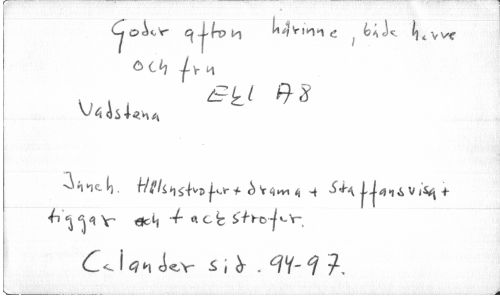 Goder afton härinne, både herre
och fru
Ekl A8
Vadstena
Inneh. Hälsnstrofer + drama + Staffansvisa +
tiggar och tackstrofer.
Celander sid. 94-97.